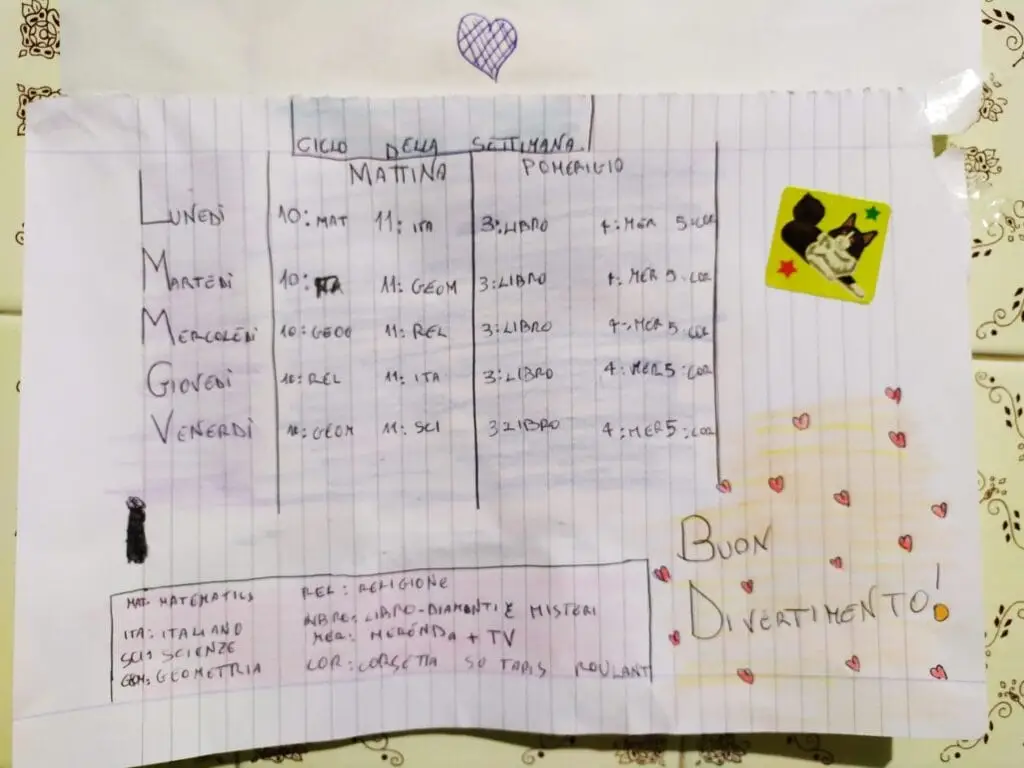 CICLO DELLA SETTIMANA
MATTINA POMERIGIO
LUNEDì 10: MAT 11: ITA 3: LIBRO 4: MER 5: COR
MARTEDì 10: 11: GEOM 3: LIBRO 4: MER 5: COR
MERCOLEDì 10: GEOG 11: REL 3: LIBRO 4: MER 5: COR
GIOVEDì 10: REL 11: ITA 3: LIBRO 4: MER 5: COR
VENERDì 10: GEOM 11: SCI 3: LIBRO 4: MER 5: COR
MAT: MATEMATICA REL: RELIGIONE
ITA: ITALIANO LIBRO: LIBRO-DIAMANTI E MISTERI
SCI: SCIENZE MER: MERENDA + TV
GEOM: GEOMETRIA COR: CORSETTA SU TAPIS ROULANT
BUON
DIVERTIMENTO!